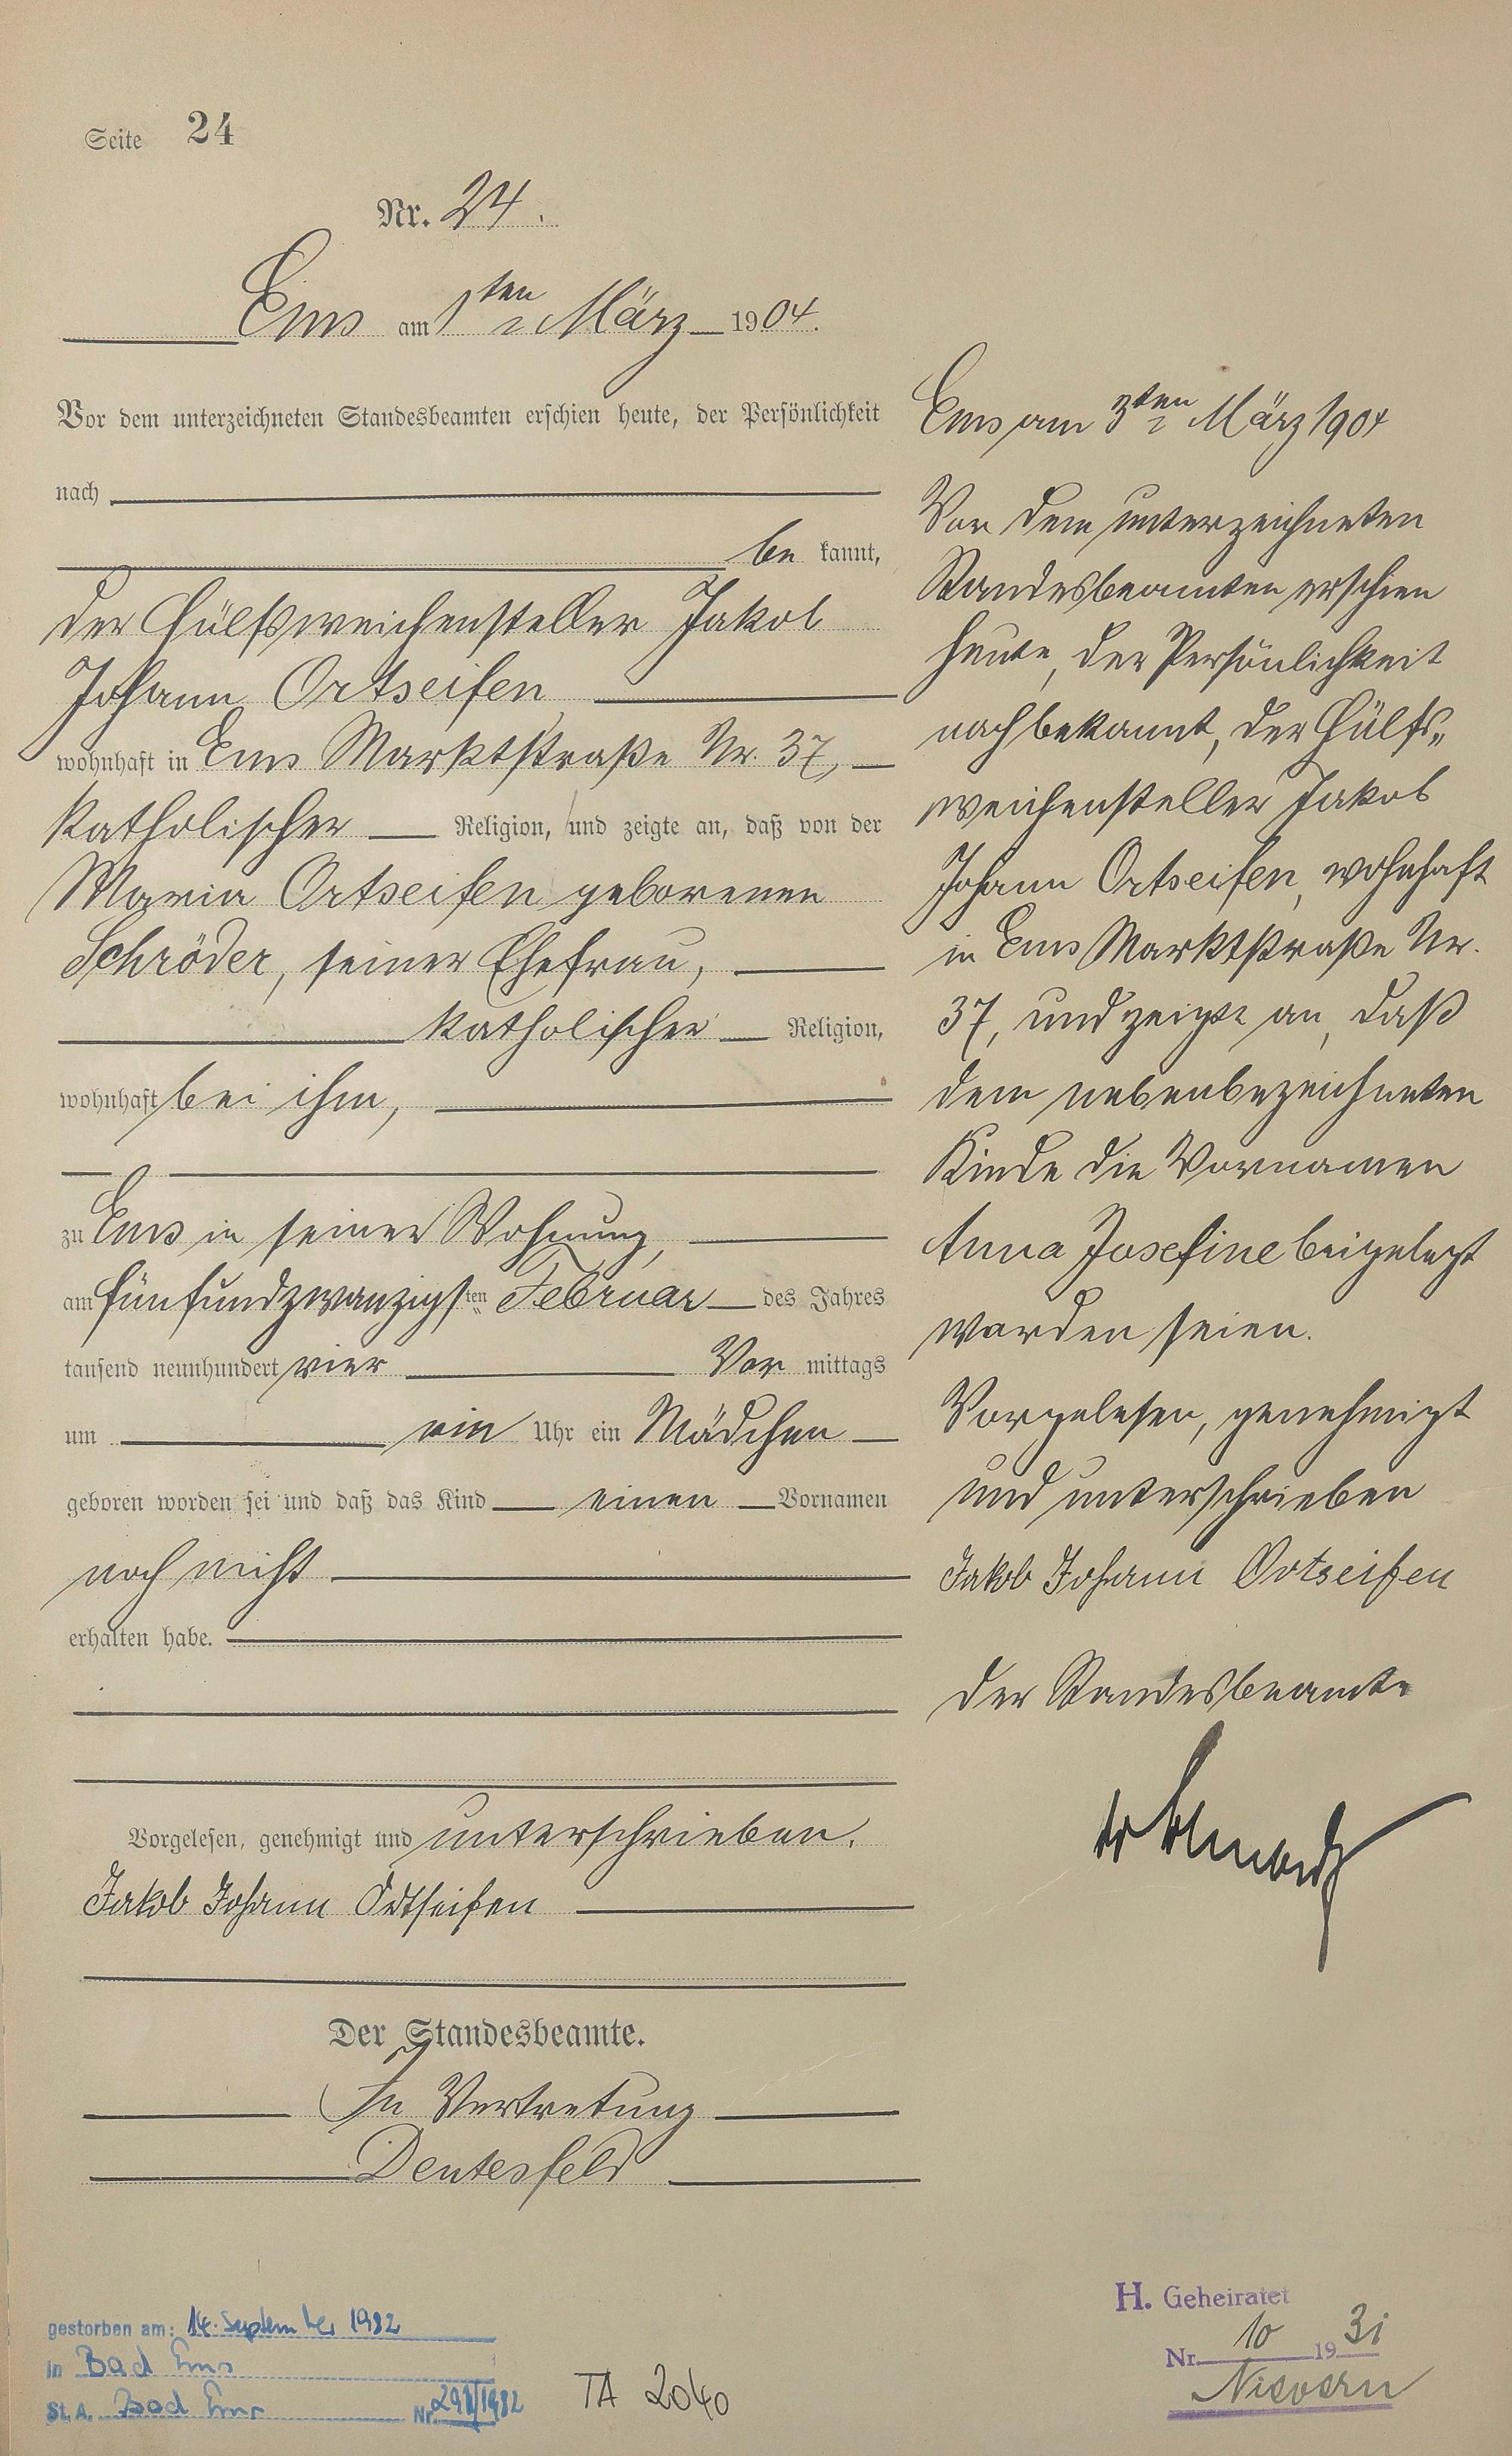 Seite 24
Nr. 24.
Ems am 1ten März 1904.
Vor dem unterzeichneten Standesbeamten erschien heute, der Persönlichkeit
nach
be kannt,
der Hülfsweichensteller Jakob
Johann Ortseifen
wohnhaft in Ems Marktstraße Nr. 37,
katholischer Religion, und zeigte an, daß von der
Maria Ortseifen geborenen
Schröder, seiner Ehefrau,
katholischer Religion,
wohnhaft bei ihm,
zu Ems in seiner Wohnung,
am fünfundzwanzigsten Februar des Jahres
tausend neunhundert vier Vor mittags
um ein Uhr ein Mädchen
geboren worden sei und daß das Kind einen Vornamen
noch nicht
erhalten habe.
Vorgelesen, genehmigt und unterschrieben.
Jakob Johann Ortseifen
Der Standesbeamte.
In Vertretung
Deutesfeld
Ems am 3ten März 1904
Vor dem unterzeichneten
Standesbeamten erschien
heute, der Persönlichkeit
nach bekannt, der Hülfs„
weichensteller Jakob
Johann Ortseifen, wohnhaft
in Ems Marktstraße Nr.
37, und zeigte an, daß
dem nebenbezeichneten
Kinde die Vornamen
Anna Josefine beigelegt
worden seien.
Vorgelesen, genehmigt
und unterschrieben
Jakob Johann Ortseifen
Der Standesbeamte
gestorben am: 14. September 1982
in Bad Ems
St. A. Bad Ems Nr. /1982
TA 2040
H. Geheiratet
Nr. 10 1931
Nievern